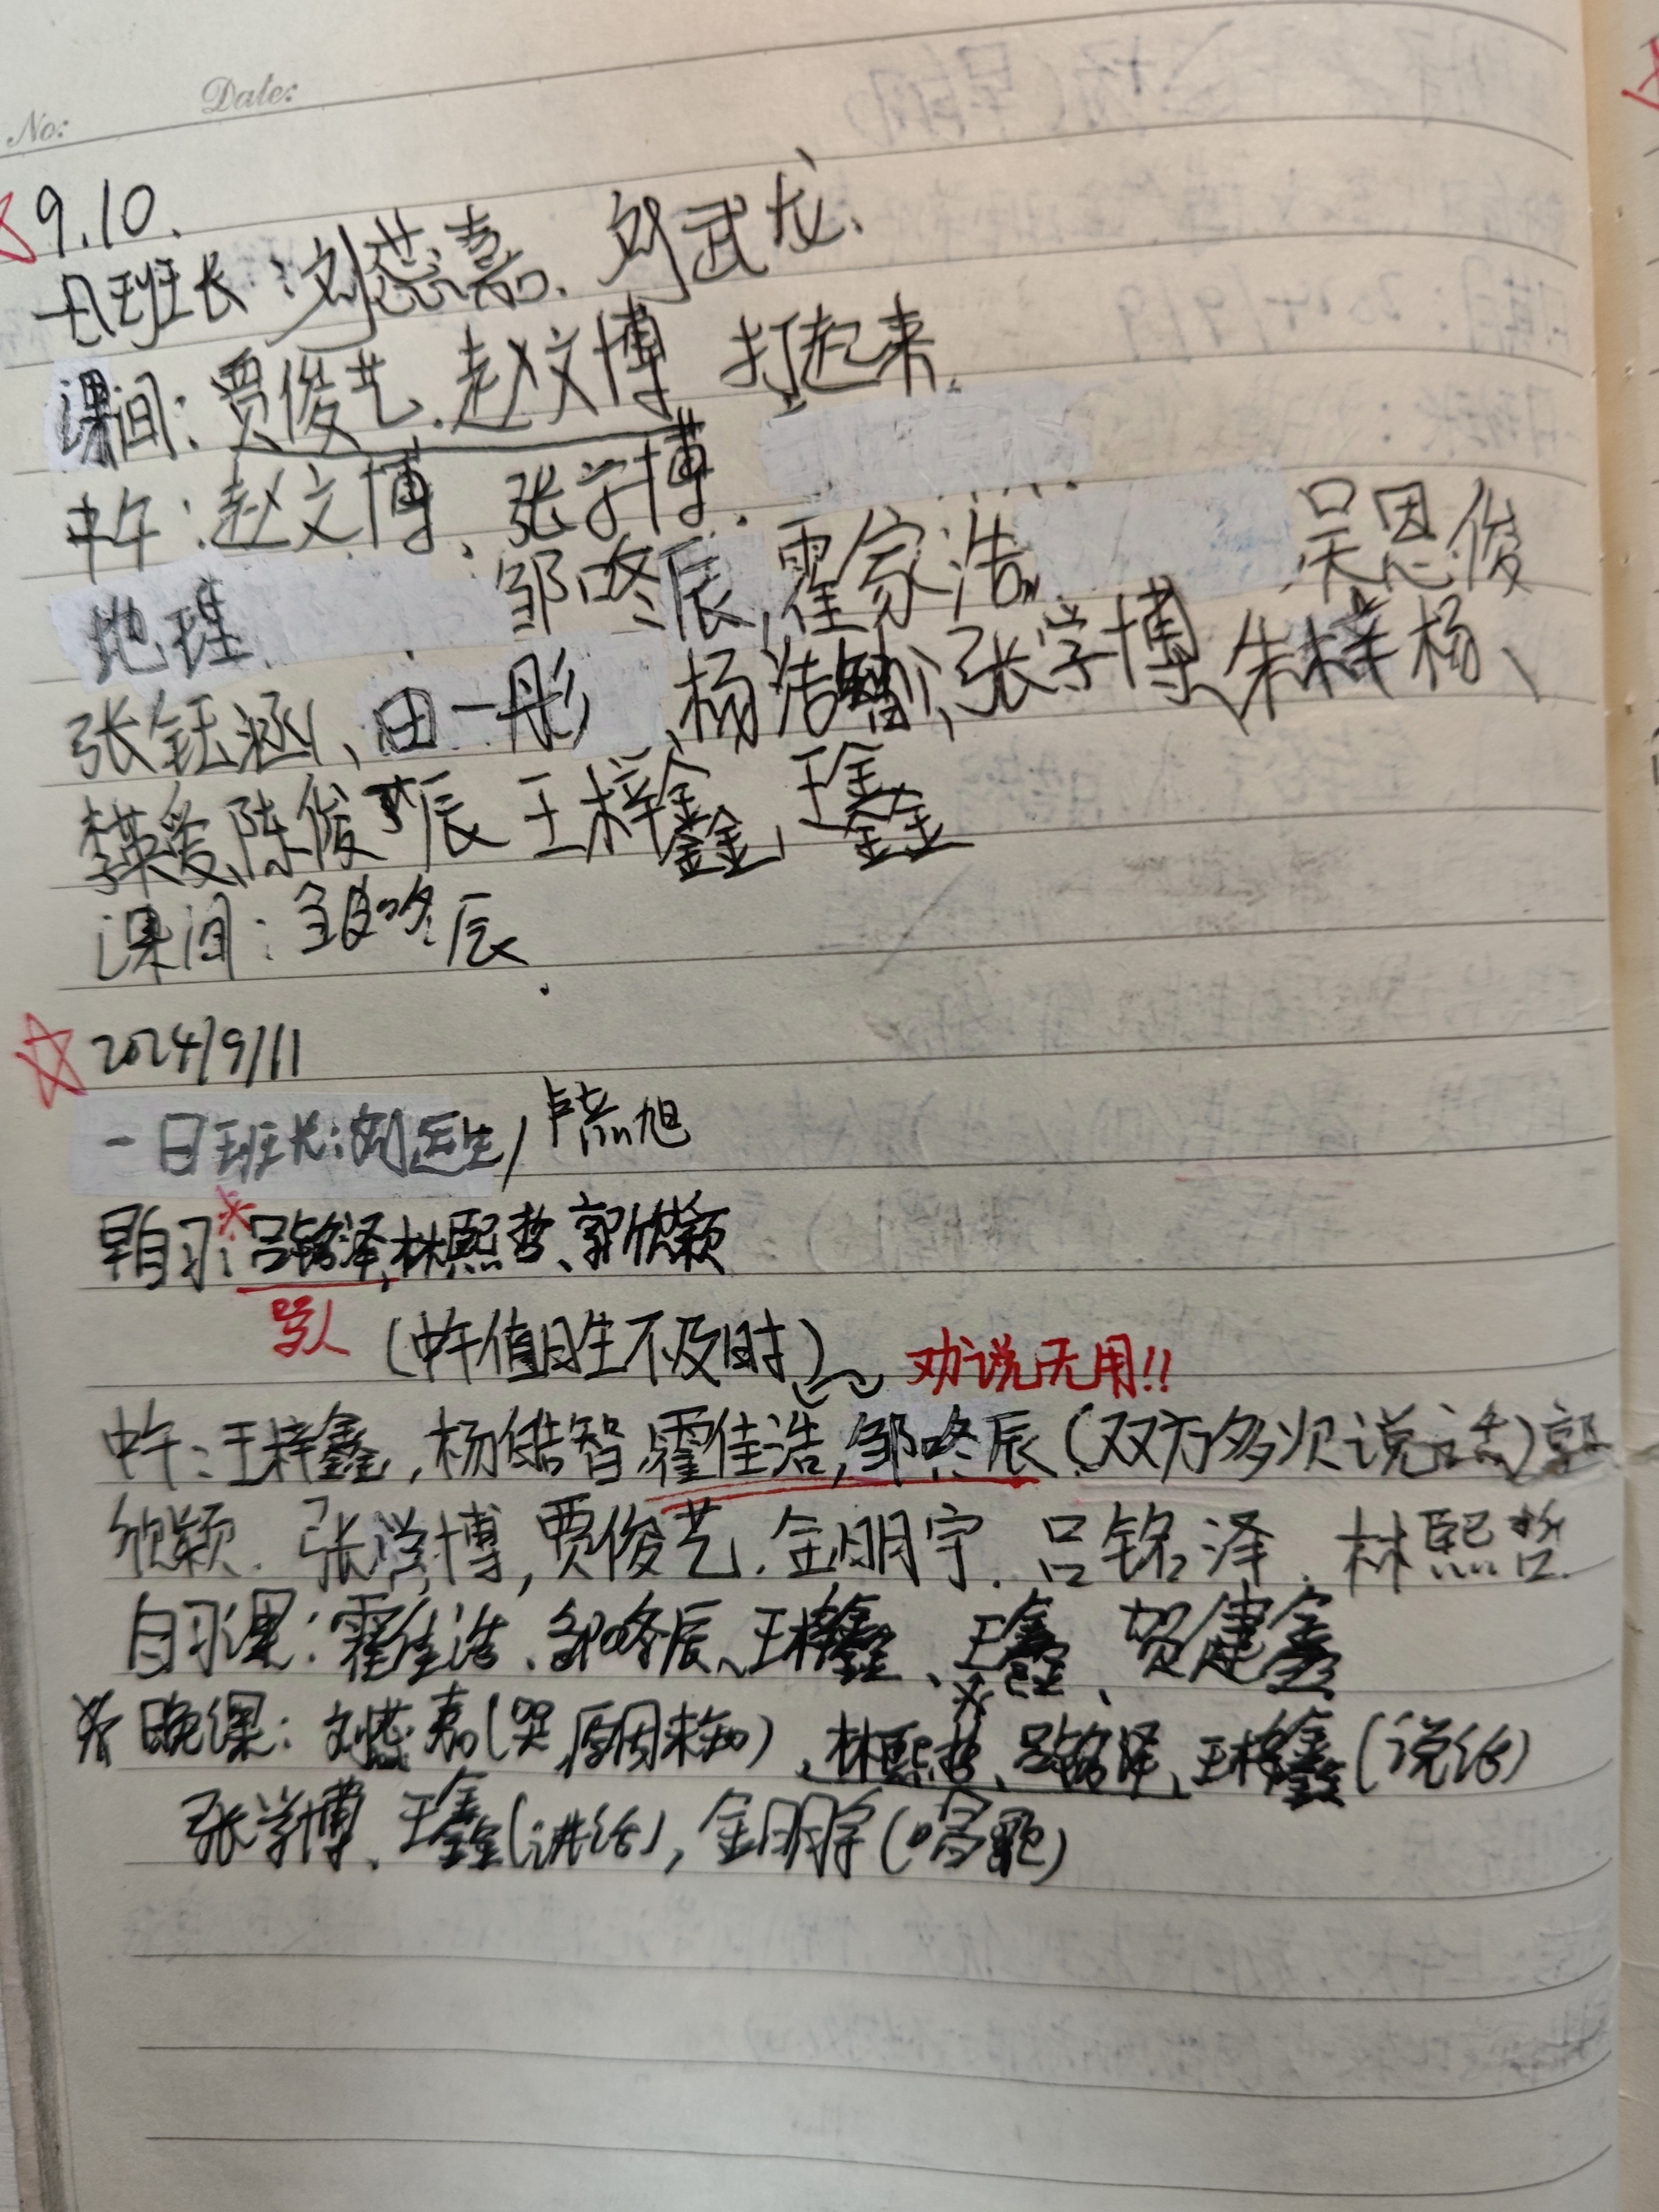 No: Date:
9.10.
一日班长:刘蕊嘉、刘武龙、
课间:贾俊艺、赵文博 打起来.
中午:赵文博、张学博、
地理 邹咚辰、霍家浩、 吴恩俊
张钰涵、田一彤、杨浩智、张学博、朱梓杨、
李英爱、陈俊辰 王梓鑫、王鑫
课间:邹咚辰.
2024/9/11
一日班长:刘 生/ 旭
早自习:吕铭泽,林熙哲、郭欣颖
骂人 (中午值日生不及时) 劝说无用!!
中午:王梓鑫,杨皓智,霍佳浩,邹咚辰(双方多次说话)郭
欣颖、张学博,贾俊艺、金明宇、吕铭泽、林熙哲.
自习课:霍佳浩、邹咚辰、王梓鑫、王鑫、贺建鑫
晚课:刘蕊嘉(哭,原因未知)、林熙哲、吕铭泽、王梓鑫(说话)
张学博、王鑫(讲话),金明宇(唱歌)